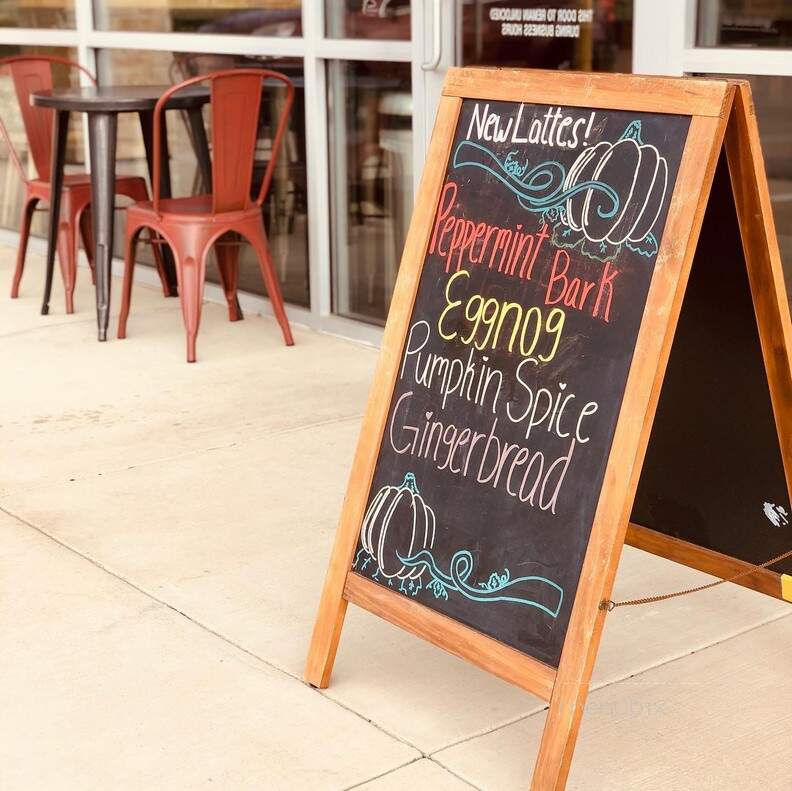 THIS DOOR TO REMAIN UNLOCKED
DURING BUSINESS HOURS
New Lattes!
Peppermint Bark
Eggnog
Pumpkin Spice
Gingerbread